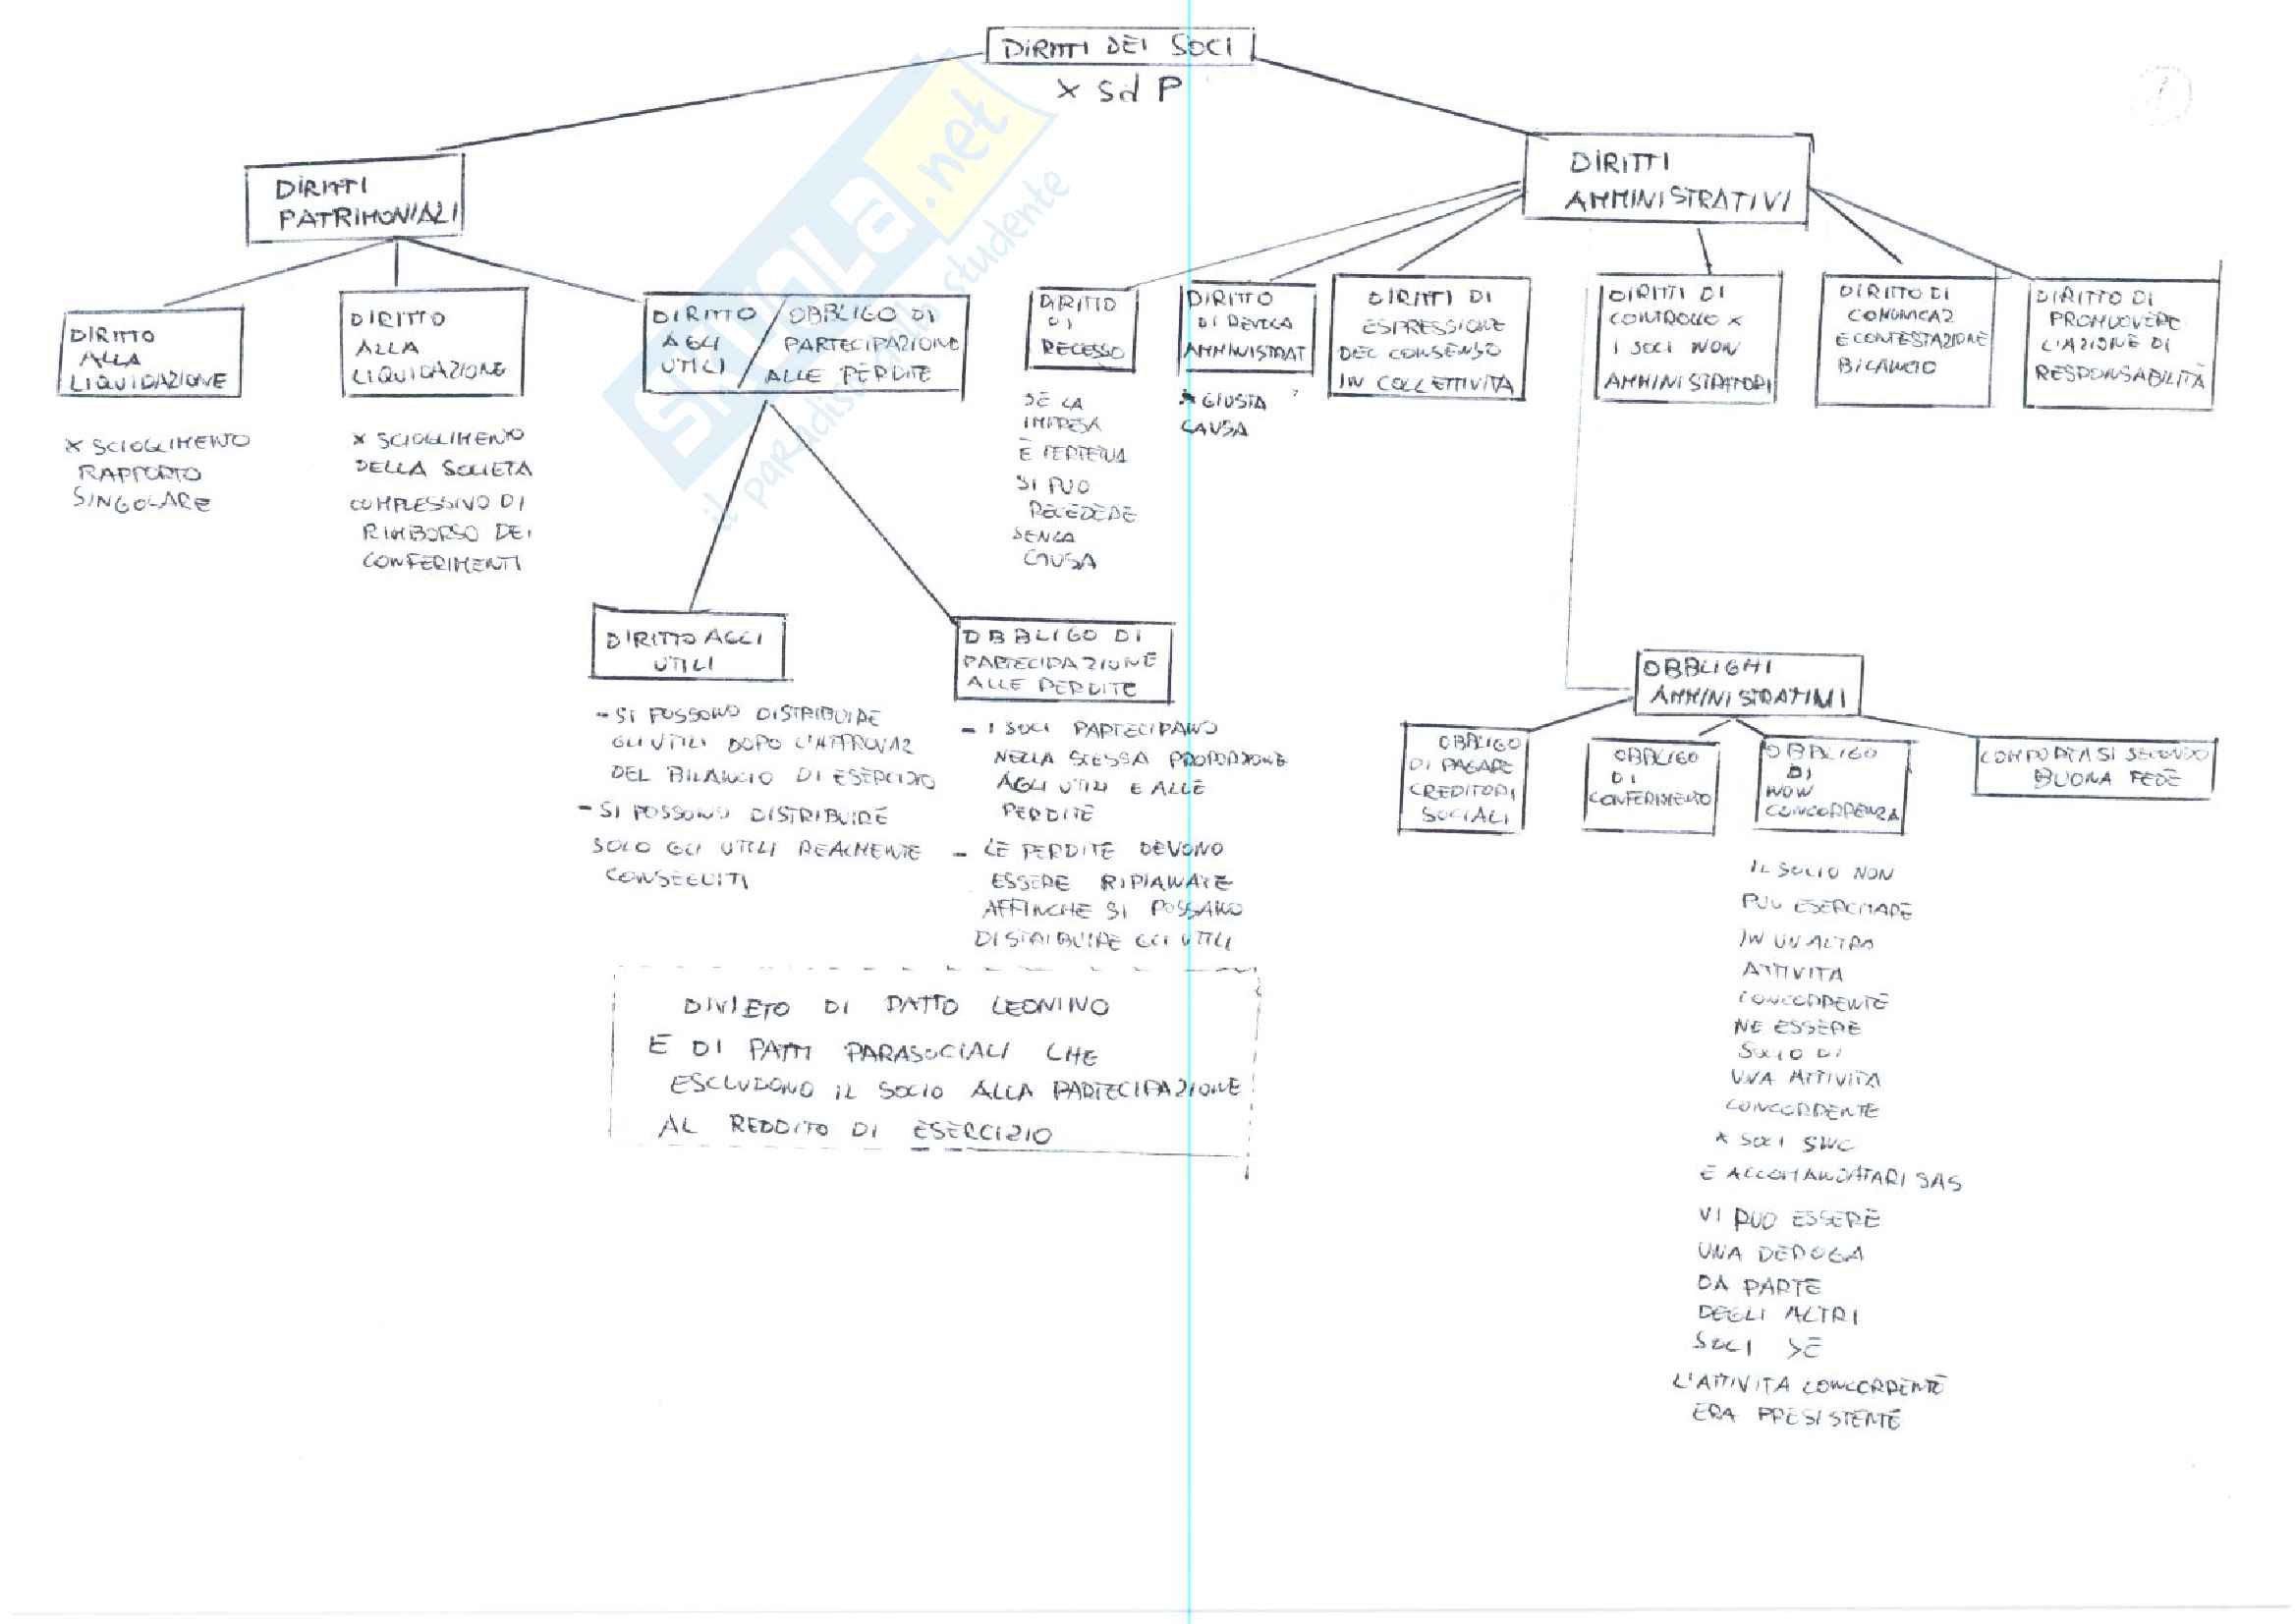 DIRITTI DEI SOCI
X SdP
DIRITTI
PATRIMONIALI
DIRITTI
AMMINISTRATIVI
DIRITTO
ALLA
LIQUIDAZIONE
X SCIOGLIMENTO
RAPPORTO
SINGOLARE
DIRITTO
ALLA
LIQUIDAZIONE
X SCIOGLIMENTO
DELLA SOCIETA
COMPLESSIVO DI
RIMBORSO DEI
CONFERIMENTI
DIRITTO / OBBLIGO DI
AGLI PARTECIPAZIONE
UTILI / ALLE PERDITE
DIRITTO
DI
RECESSO
SE LA
IMPRESA
È
SI PUO
RECEDERE
SENZA
CAUSA
DIRITTO
DI REVOCA
AMMINISTRAT
X GIUSTA
CAUSA
DIRITTI DI
ESPRESSIONE
DEL CONSENSO
IN COLLETTIVITA
DIRITTI DI
CONTROLLO X
I SOCI NON
AMMINISTRATORI
DIRITTO DI
COMUNICAZ
E CONTESTAZIONE
BILANCIO
DIRITTO DI
PROMUOVERE
L'AZIONE DI
RESPONSABILITÀ
DIRITTO AGLI
UTILI
- SI POSSONO DISTRIBUIRE
GLI UTILI DOPO L'APPROVAZ
DEL BILANCIO DI ESERCIZIO
- SI POSSONO DISTRIBUIRE
SOLO GLI UTILI REALMENTE
CONSEGUITI
OBBLIGO DI
PARTECIPAZIONE
ALLE PERDITE
- I SOCI PARTECIPANO
NELLA STESSA PROPORZIONE
AGLI UTILI E ALLE
PERDITE
- LE PERDITE DEVONO
ESSERE RIPIANATE
AFFINCHE SI POSSANO
DISTRIBUIRE GLI UTILI
DIVIETO DI PATTO LEONINO
E DI PATTI PARASOCIALI CHE
ESCLUDONO IL SOCIO ALLA PARTECIPAZIONE
AL REDDITO DI ESERCIZIO
OBBLIGHI
AMMINISTRATIVI
OBBLIGO
DI PAGARE
CREDITORI
SOCIALI
OBBLIGO
DI
CONFERIMENTO
OBBLIGO
DI
NON
CONCORRENZA
COMPORTASI SECONDO
BUONA FEDE
IL SOCIO NON
PUO ESERCITARE
IN UN ALTRA
ATTIVITA
CONCORRENTE
NE ESSERE
SOCIO DI
UNA ATTIVITA
CONCORRENTE
X SOCI SNC
E ACCOMANDATARI SAS
VI PUO ESSERE
UNA DEROGA
DA PARTE
DEGLI ALTRI
SOCI SE
L'ATTIVITA CONCORRENTE
ERA PRESISTENTE
SKUOLA.net
il paradiso dello studente